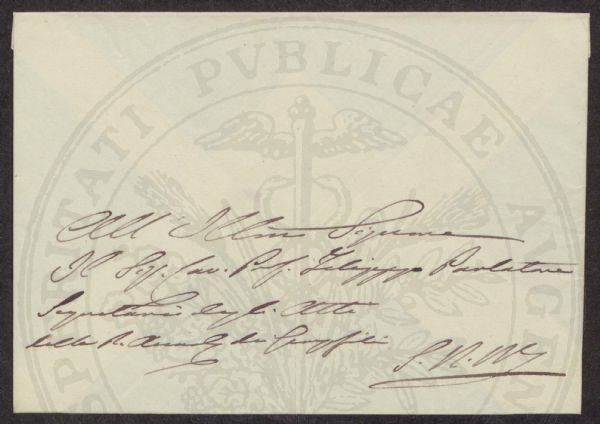 PROSPERITATI PVBLICAE AVGENDAE
All' Illmo Signore
Il Sig. Cav. Prof. Filippo Parlatore
Segretario degli Atti
della R. Accad. dei Georgofili
S. R. M.